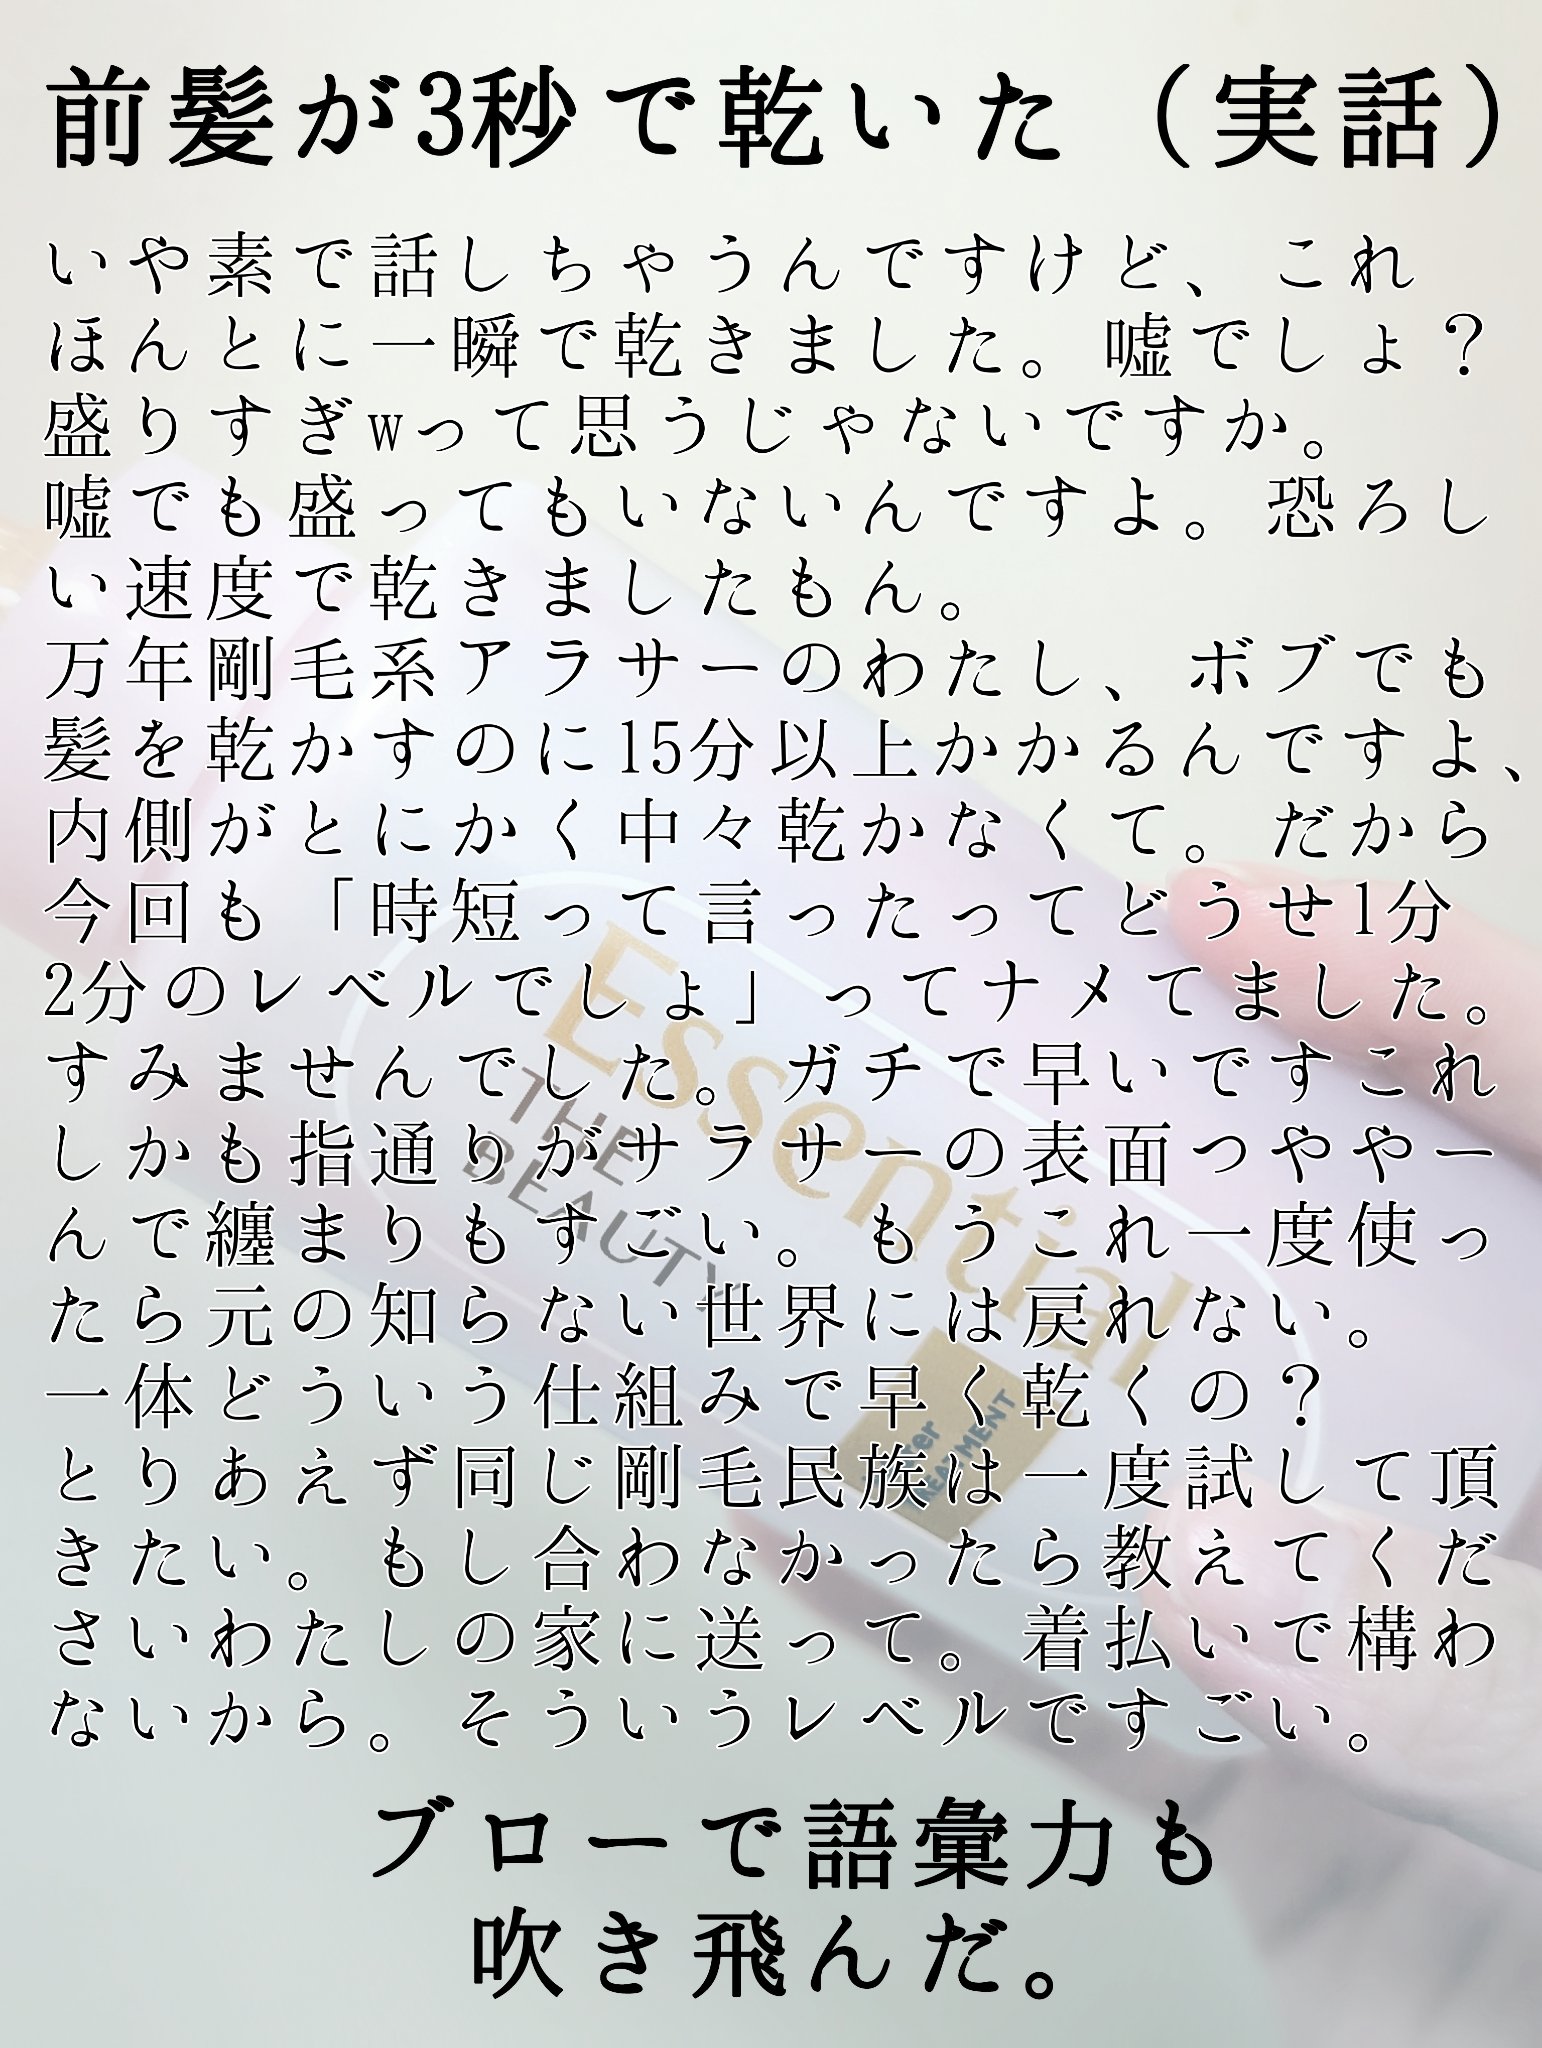 前髪が3秒で乾いた（実話）
いや素で話しちゃうんですけど、これ
ほんとに一瞬で乾きました。嘘でしょ？
盛りすぎwって思うじゃないですか。
嘘でも盛ってもいないんですよ。恐ろし
い速度で乾きましたもん。
万年剛毛系アラサーのわたし、ボブでも
髪を乾かすのに15分以上かかるんですよ、
内側がとにかく中々乾かなくて。だから
今回も「時短って言ったってどうせ1分
2分のレベルでしょ」ってナメてました。
すみませんでした。ガチで早いですこれ
しかも指通りがサラサーの表面つややー
んで纏まりもすごい。もうこれ一度使っ
たら元の知らない世界には戻れない。
一体どういう仕組みで早く乾くの？
とりあえず同じ剛毛民族は一度試して頂
きたい。もし合わなかったら教えてくだ
さいわたしの家に送って。着払いで構わ
ないから。そういうレベルですごい。
ブローで語彙力も
吹き飛んだ。
Essential
THE
BEAUTY
TREATMENT